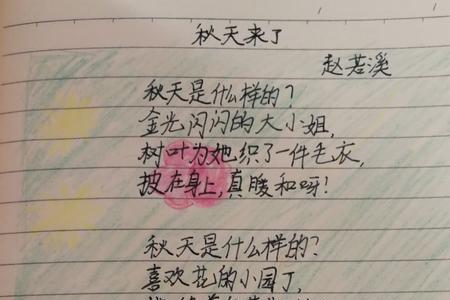 秋天来了
赵若溪
秋天是什么样的？
金光闪闪的大小姐，
树叶为她织了一件毛衣，
披在身上，真暖和呀！
秋天是什么样的？
喜欢花的小园丁，